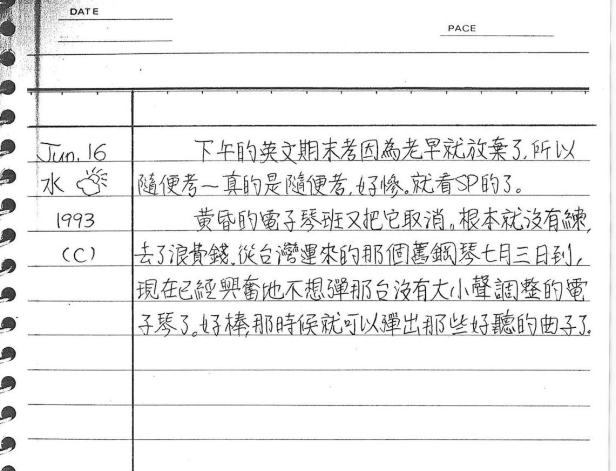 DATE
PACE
Jun. 16
水
1993
(C)
下午的英文期末考因為老早就放棄了,所以
隨便考—真的是隨便考,好慘。就看SP的了。
黃昏的電子琴班又把它取消。根本就沒有練,
去了浪費錢。從台灣運來的那個舊鋼琴七月三日到,
現在已經興奮地不想彈那台沒有大小聲調整的電
子琴了。好棒,那時候就可以彈出那些好聽的曲子了。